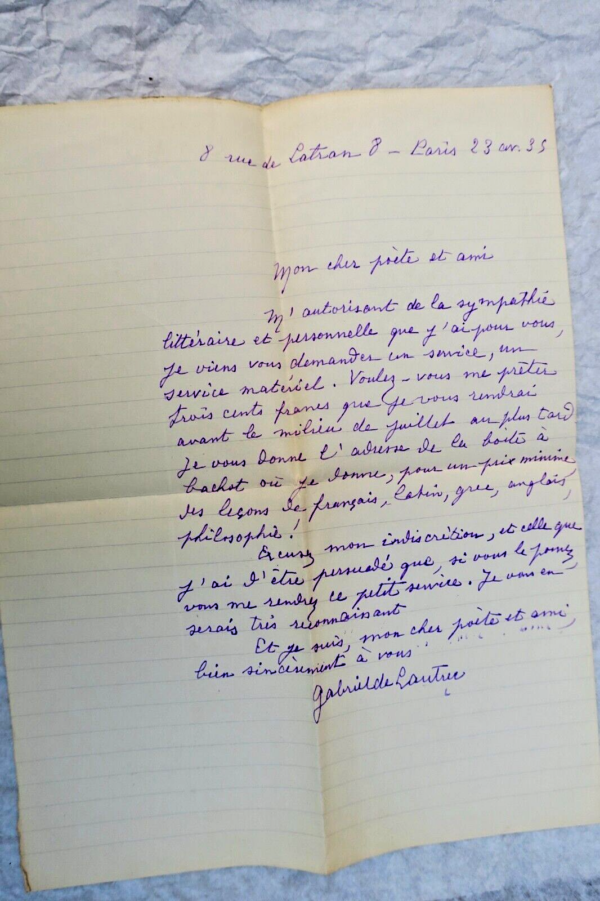 8 rue de Latran 8 – Paris 23 av. 35
Mon cher poète et ami
M'autorisant de la sympathie
littéraire et personnelle que j'ai pour vous,
je viens vous demander un service, un
service matériel. Voulez-vous me prêter
trois cents francs que je vous rendrai
avant le milieu de juillet au plus tard
Je vous donne l'adresse de la boîte à
bachot où je donne, pour un prix minime,
des leçons de français, latin, grec, anglais,
philosophie !
Excusez mon indiscrétion, et celle que
j'ai d'être persuadé que, si vous le pouvez,
vous me rendrez ce petit service. Je vous en
serais très reconnaissant
Et je suis, mon cher poète et ami,
bien sincèrement à vous
Gabriel de Lautrec